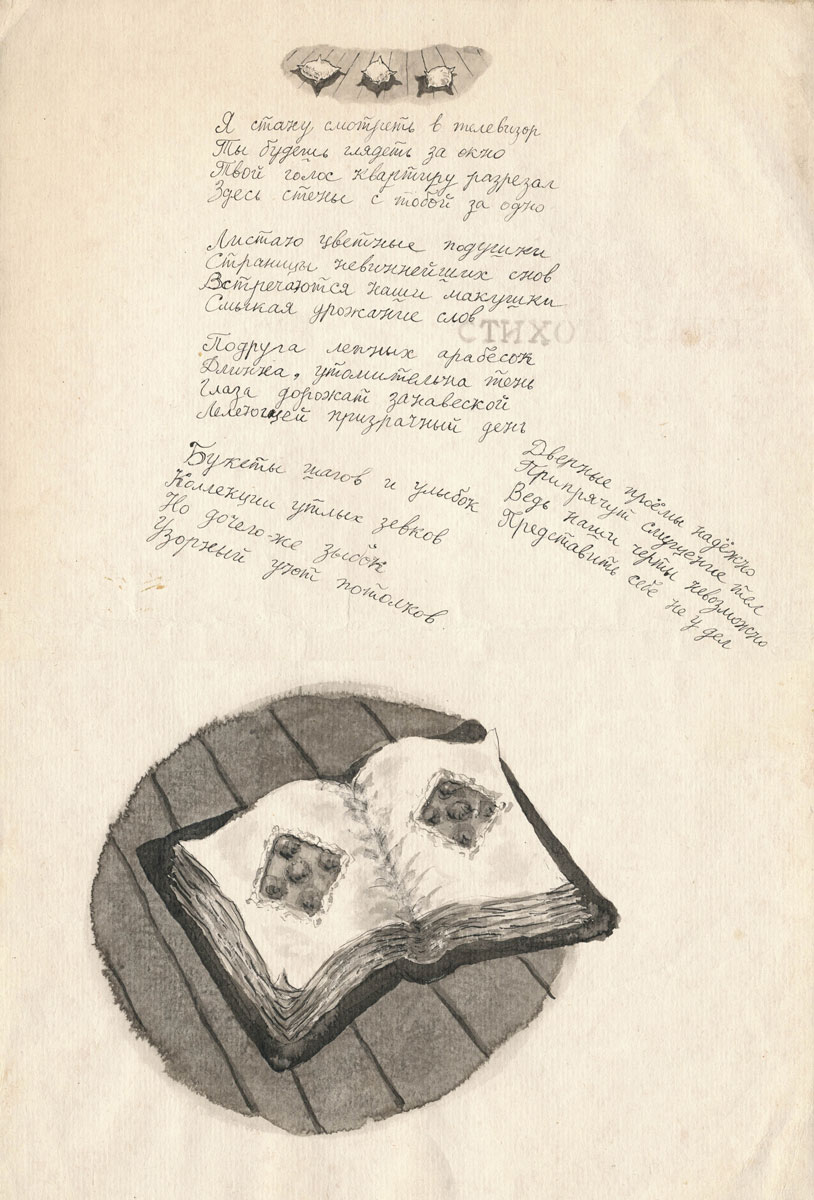 Я стану смотреть в телевизор
Ты будешь глядеть за окно
Твой голос квартиру разрезал
Здесь стены с тобой за одно
Листаю цветные подушки
Страницы невиннейших снов
Встречаются наши макушки
Смыкая урожание слов
СТИХО
Подруга лепных арабесок
Длинна, утомительна тень
Глаза дорожат занавеской
Лелеющей призрачный день
Букеты шагов и улыбок
Коллекции утлых зевков
Но дочего-же зыбок
Узорный уют потолков.
Дверные проёмы надёжно
Припрячут смущение тел
Ведь наши черты невозможно
Представить себе не у дел